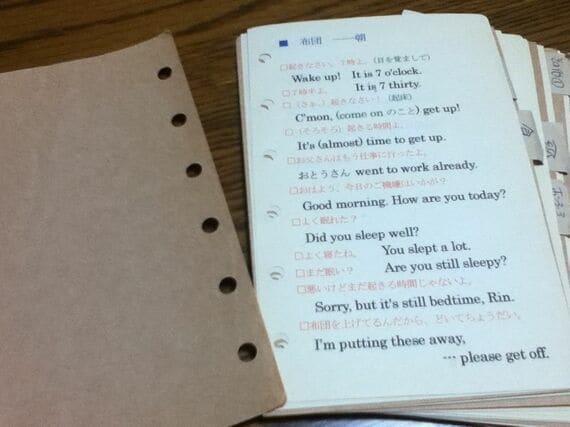 ■ 布団 ――朝
□起きなさい、7時よ。(目を覚まして)
Wake up! It is 7 o'clock.
□7時半よ。 It is 7 thirty.
□(さぁ、)起きなさい!(起床)
C'mon, (come on のこと) get up!
□(そろそろ)起きる時間よ。
It's (almost) time to get up.
□お父さんはもう仕事に行ったよ。
おとうさん went to work already.
□おはよう、今日のご機嫌はいかが?
Good morning. How are you today?
□よく眠れた?
Did you sleep well?
□よく寝たね。 You slept a lot.
□まだ眠い? Are you still sleepy?
□悪いけどまだ起きる時間じゃないよ。
Sorry, but it's still bedtime, Rin.
□布団を上げてるんだから、どいてちょうだい。
I'm putting these away,
… please get off.